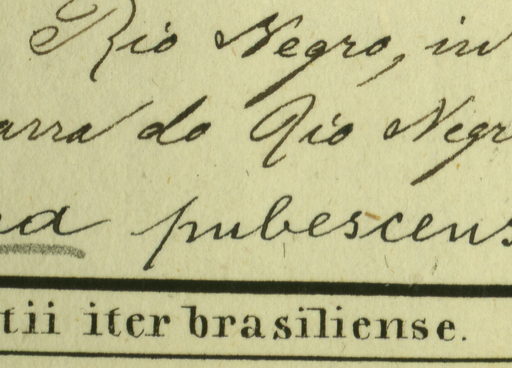 Rio Negro, in
arra do Rio Negr
ea pubescens
tii iter brasiliense.